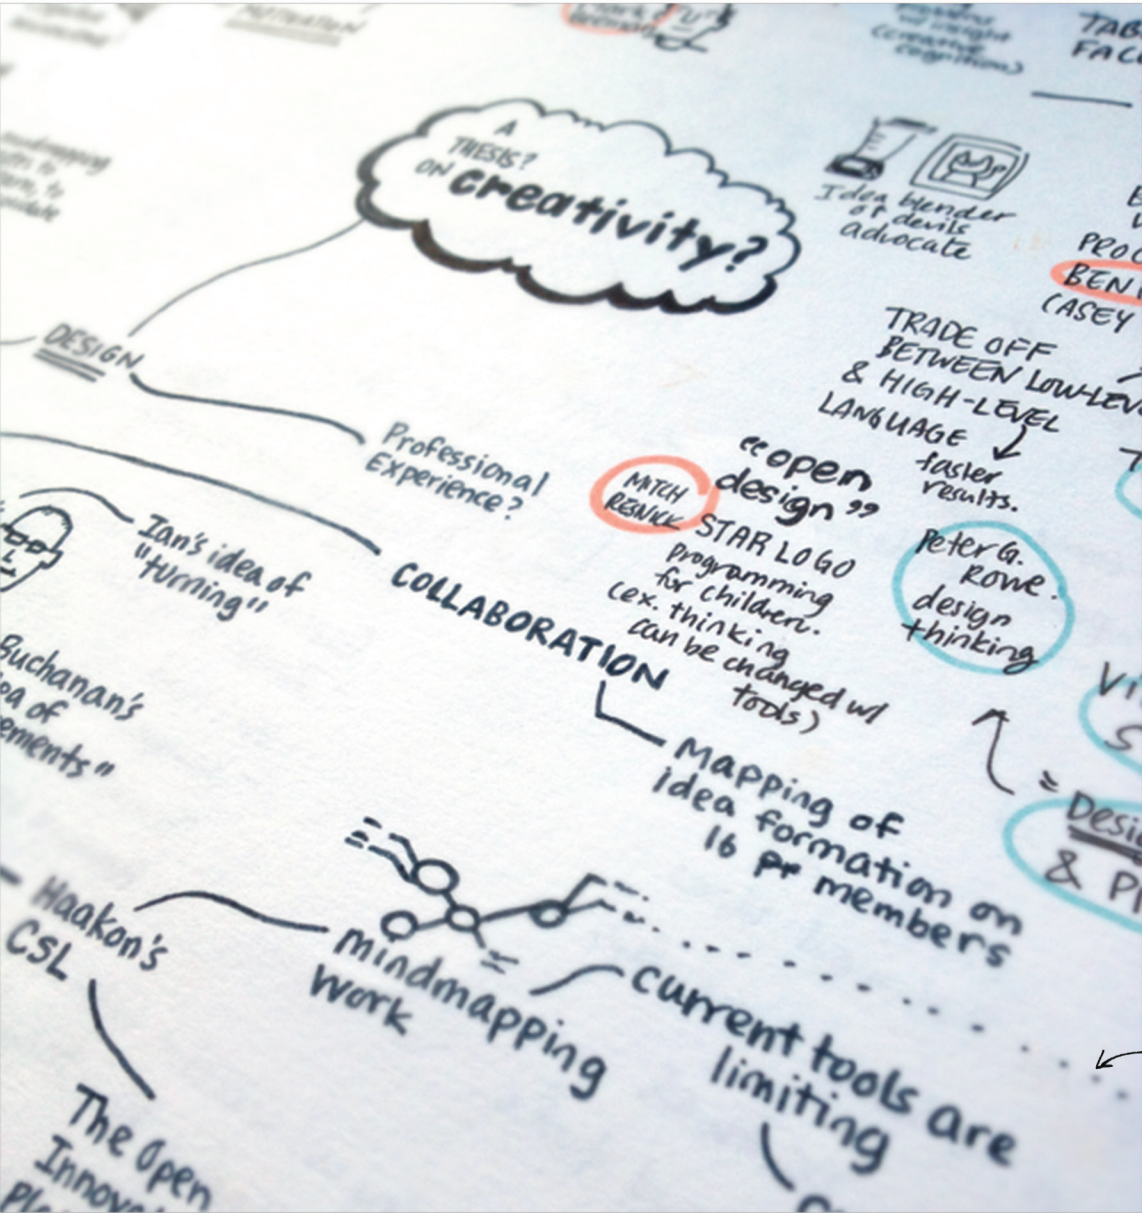 MOTIVATION
(creative
cognition)
TAB
FAC
A
THESIS?
ON creativity?
Idea blender
or devils
advocate
PROC
BEN
CASEY
DESIGN
TRADE OFF
BETWEEN LOW-LEV
& HIGH-LEVEL
LANGUAGE
faster
results.
Professional
Experience?
"open
design"
MITCH
RESNICK
STAR LOGO
programming
for children.
(ex. thinking
can be changed w/
tools)
Peter G.
Rowe.
design
thinking
Ian's idea of
"turning"
COLLABORATION
Buchanan's
of
ements"
Mapping of
idea formation on
16 pr members
Desi
& Pl
Haakon's
CSL
mindmapping
work
current tools are
limiting
The Open
Innov